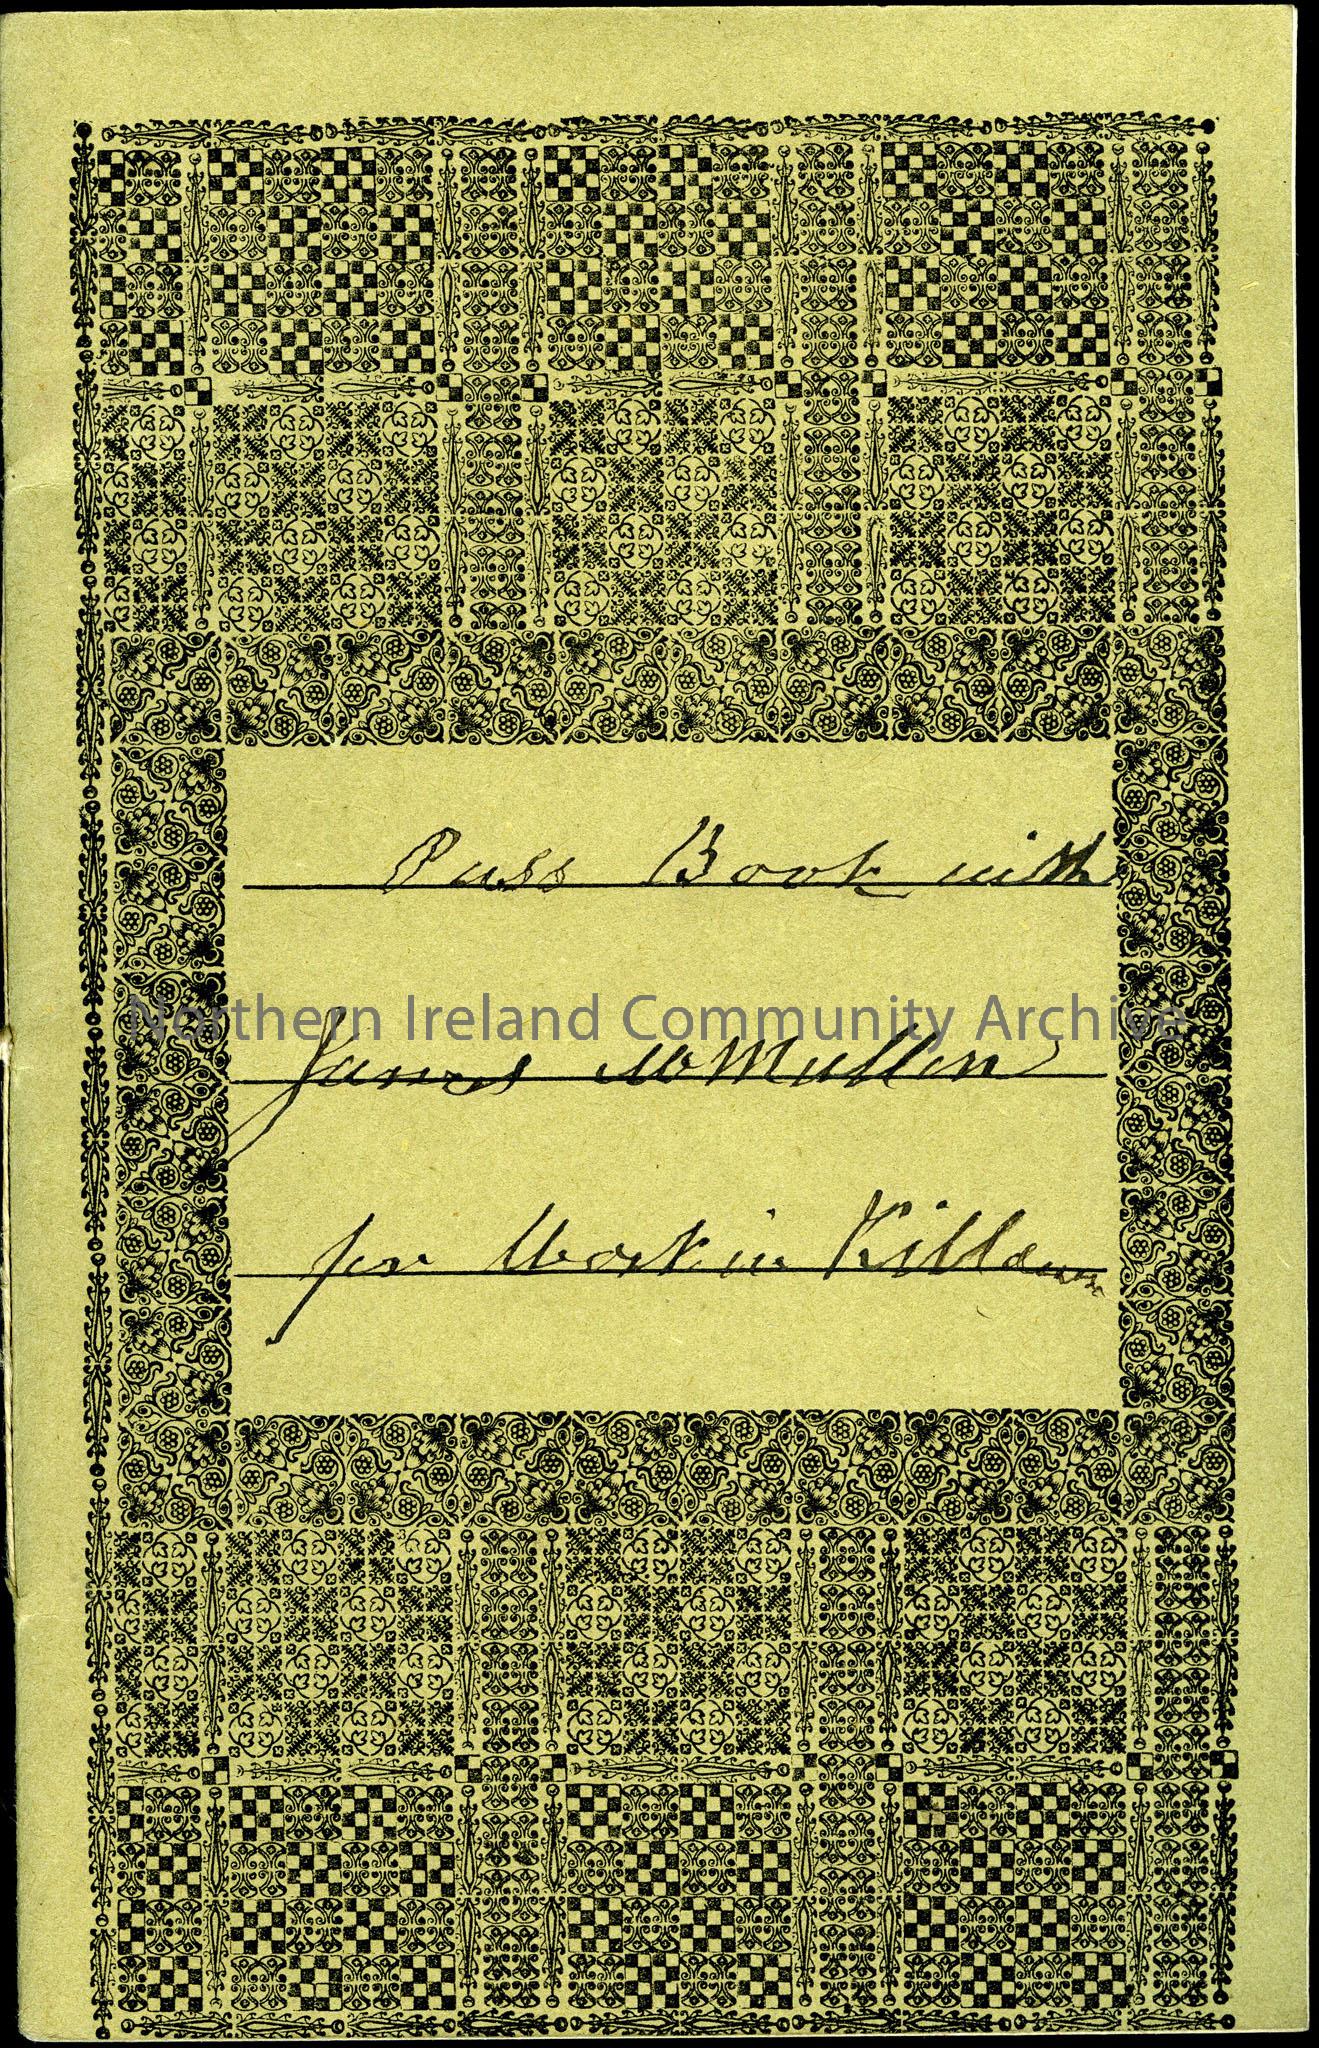 Pass Book with
Northern Ireland Community Archive
James McMullen
for Work in